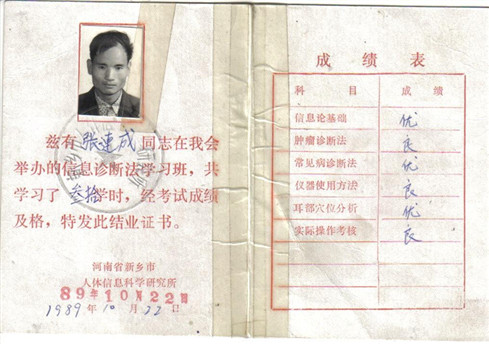 兹有 张连成 同志在我会
举办的信息诊断法学习班，共
学习了 叁拾学时，经考试成绩
及格，特发此结业证书。
河南省新乡市
人体信息科学研究所
89年10月22日
1989年10月22日
成绩表
科目 成绩
信息论基础 优
肿瘤诊断法 良
常见病诊断法 优
仪器使用方法 良
耳部穴位分析 优
实际操作考核 良